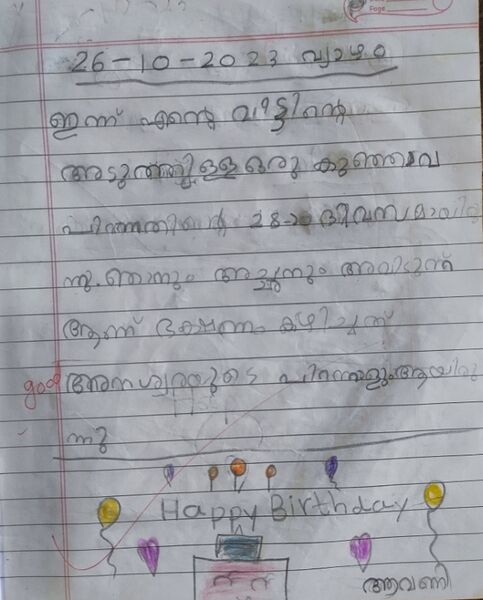 Page
26-10-2023 വ്യാഴം
ഇന്ന് എന്റെ വീട്ടിന്റെ
അടുത്തുള്ള ഒരു കുഞ്ഞാവ
പിറന്നതിന്റെ 28-ാ ദിവസമായിരു
ന്നു. ഞാനും അച്ഛനും അവിടുന്ന്
ആണ് ഭക്ഷണം കഴിച്ചത്
good
അനശ്വരയുടെ പിറന്നാളും ആയിരു
ന്നു
Happy Birthday
ആവണി